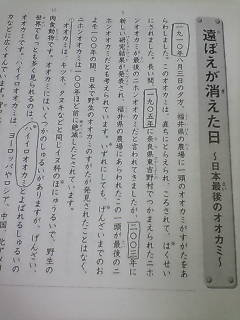 遠ぼえが消えた日
～日本最後のオオカミ～
一九一〇年三月三日の夕方、福井県の農場に一頭のオオカミがすがたをあ
らわしました。このオオカミは、直ちにとらえられ、ころされて、はくせい
にされました。長い間、一九〇五年に奈良県東吉野村でつかまえられたニホ
ンオオカミが最後のニホンオオカミだと言われてきましたが、二〇〇三年に
新しい研究結果が発表され、福井県の農場にあらわれたこの一頭が最後のニ
ホンオオカミだとも考えられています。いずれにしても、げんざいまでのお
よそ一〇〇年の間、日本で野生のオオカミのすがたが発見されたことはなく、
ニホンオオカミは一〇〇年ほど前に絶滅したとされています。
オオカミは、キツネ、タヌキなどと同じイヌ科のほにゅうるいで、野生の
肉食動物です。オオカミにはいくつかのしゅるいがありますが、げんざい、
世界でもっとも多く見られるのは、ハイイロオオカミとよばれるしゅるいの
オオカミです。ハイイロオオカミは、ヨーロッパやロシア、中国、北アメリ
カなどに広く